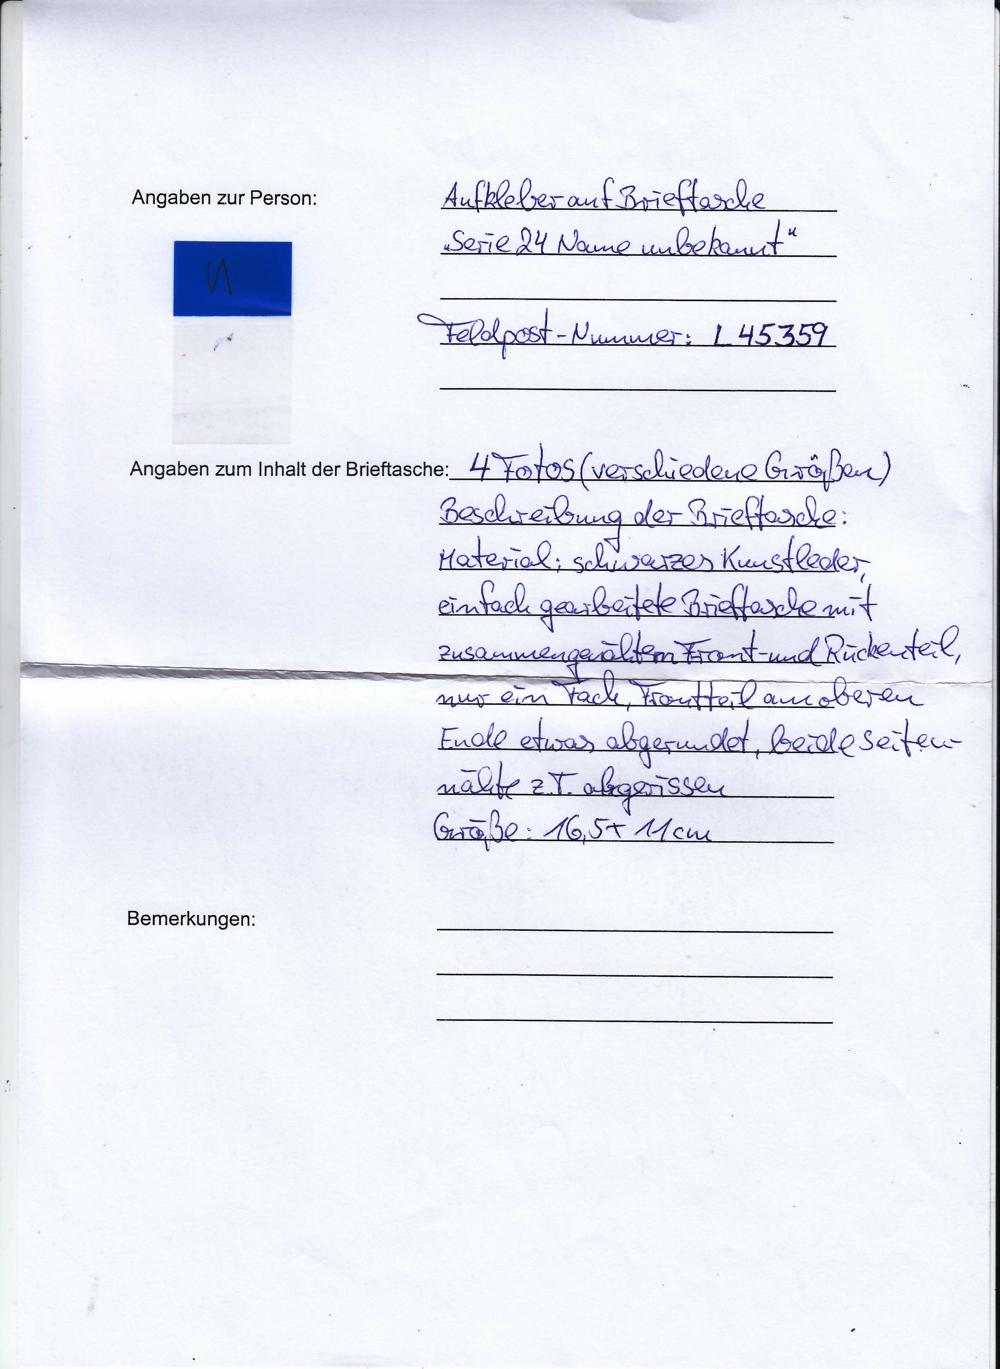 Angaben zur Person:
Aufkleber auf Brieftasche
„Serie 24 Name unbekannt“
Feldpost-Nummer: L 45359
Angaben zum Inhalt der Brieftasche: 4 Fotos (verschiedene Größen)
Beschreibung der Brieftasche:
Material: schwarzes Kunstleder,
einfach gearbeitete Brieftasche mit
Front- und Rückenteil,
nur ein Fach, Frontteil am oberen
Ende etwas abgerundet, beide Seiten-
nähte z.T. abgerissen
Größe: 16,5 x 11 cm
Bemerkungen: